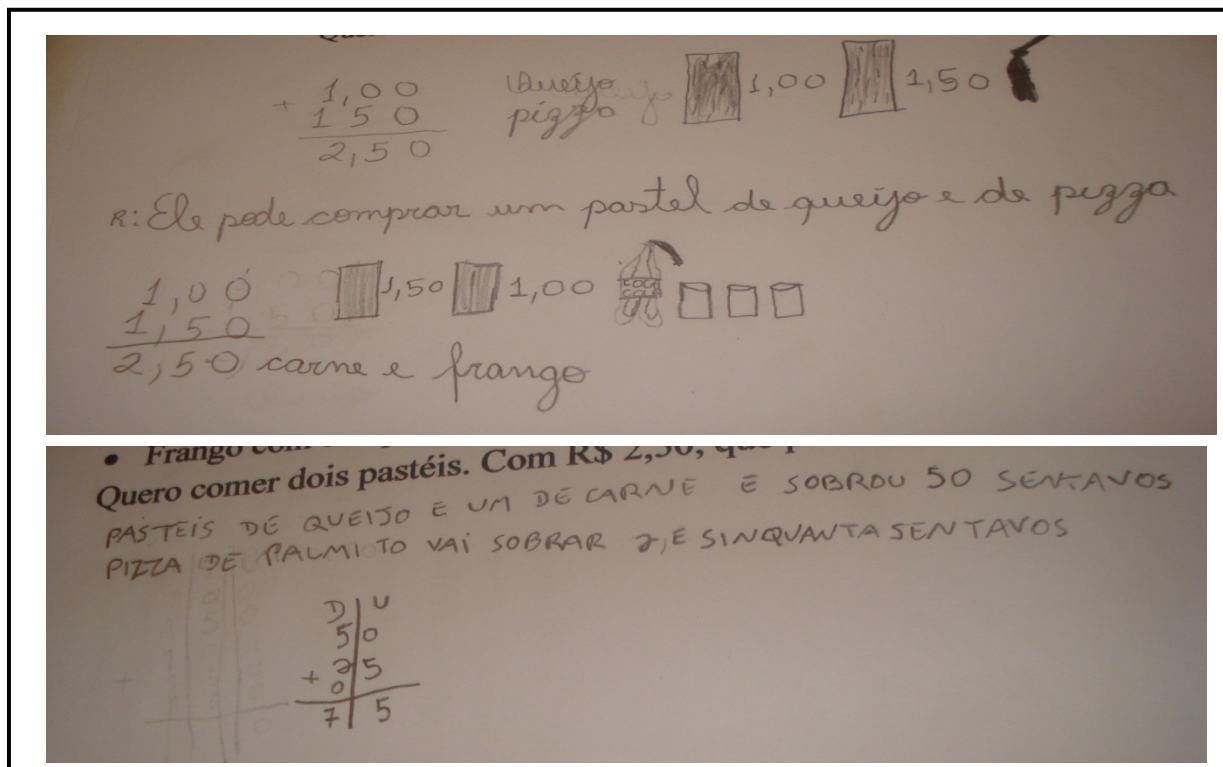 1,00 Queijo 1,00 1,50
+ 1 50 pizza
2,50
R: Ele pode comprar um pastel de queijo e de pizza
1,00 1,50 1,00 COCA COLA
1,50
2,50 carne e frango
• Frango
Quero comer dois pastéis. Com R$ 2,50,
PASTEIS DE QUEIJO E UM DE CARNE E SOBROU 50 SENTAVOS
PIZZA DE PALMITO VAI SOBRAR 2, E SINQUANTA SENTAVOS
D U
5 0
+ 2 5
0
7 5